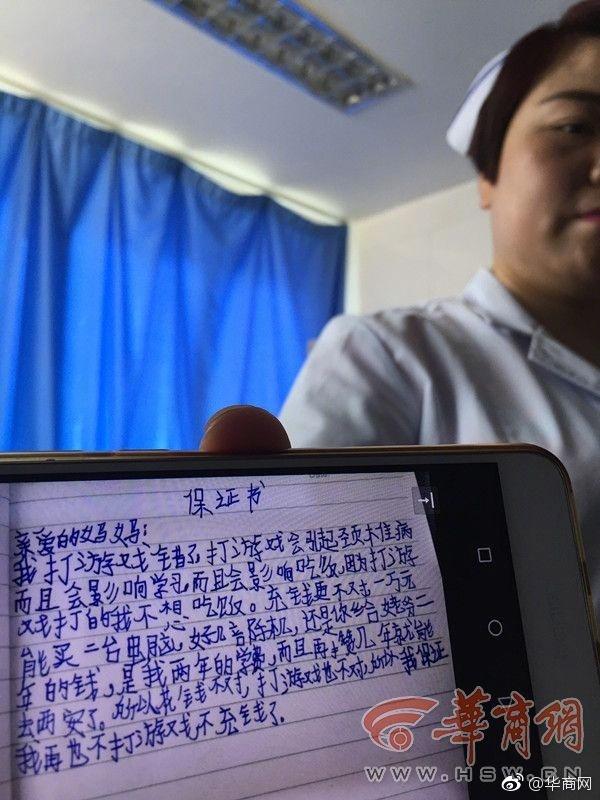 保证书
亲爱的妈妈:
我打游戏错了打游戏会引起颈椎病
而且会影响学习,而且会影响吃饭,因为打游
戏打的我不想吃饭。充钱更不对一万元
能买二台电脑,好几台阵机,还是你给姥劳二
年的钱,是我两年的学费,而且再攒几年就能
去西安了。所以花钱不对,打游戏也不对,所以我保证
我再也不打游戏不充钱了。
华商网
WWW.HSW.CN
@华商网